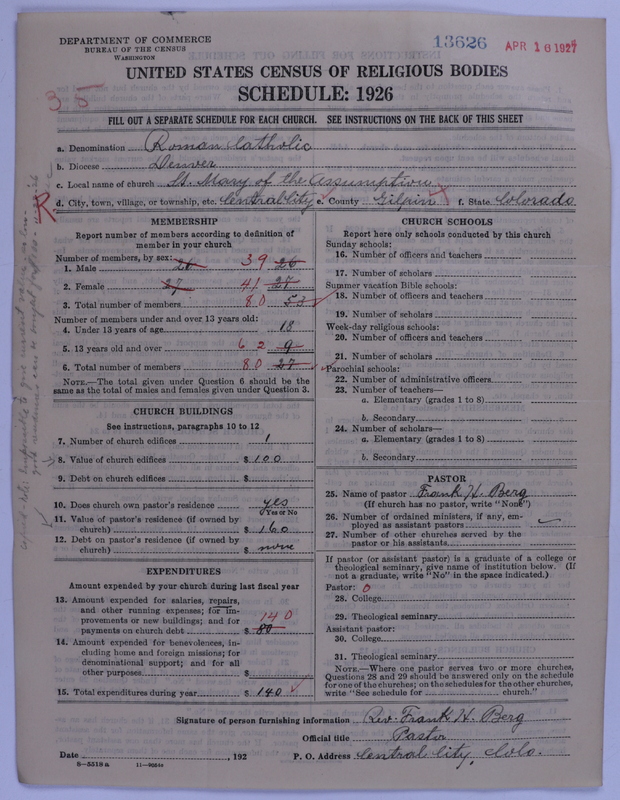 DEPARTMENT OF COMMERCE
BUREAU OF THE CENSUS
WASHINGTON
13626
APR 16 1927
35
UNITED STATES CENSUS OF RELIGIOUS BODIES
SCHEDULE: 1926
FILL OUT A SEPARATE SCHEDULE FOR EACH CHURCH. SEE INSTRUCTIONS ON THE BACK OF THIS SHEET
a. Denomination Roman Catholic
b. Diocese Denver
c. Local name of church St. Mary of the Assumption
R d. City, town, village, or township, etc. Central City e. County Gilpin f. State Colorado
MEMBERSHIP
Report number of members according to definition of
member in your church
Number of members, by sex:
1. Male 26 39 26
2. Female 27 41 27
3. Total number of members 80 53
Number of members under and over 13 years old:
4. Under 13 years of age 18
5. 13 years old and over 62 9
6. Total number of members 80 27
NOTE.—The total given under Question 6 should be the
same as the total of males and females given under Question 3.
CHURCH BUILDINGS
See instructions, paragraphs 10 to 12
7. Number of church edifices 1
8. Value of church edifices $ 100
9. Debt on church edifices $
10. Does church own pastor's residence yes
Yes or No
11. Value of pastor's residence (if owned by
church) $ 160
12. Debt on pastor's residence (if owned by
church) $ none
EXPENDITURES
Amount expended by your church during last fiscal year
13. Amount expended for salaries, repairs,
and other running expenses; for im-
provements or new buildings; and for 140
payments on church debt $ 80
14. Amount expended for benevolences, in-
cluding home and foreign missions; for
denominational support; and for all
other purposes $
15. Total expenditures during year $ 140
CHURCH SCHOOLS
Report here only schools conducted by this church
Sunday schools:
16. Number of officers and teachers
17. Number of scholars
Summer vacation Bible schools:
18. Number of officers and teachers
19. Number of scholars
Week-day religious schools:
20. Number of officers and teachers
21. Number of scholars
Parochial schools:
22. Number of administrative officers
23. Number of teachers—
a. Elementary (grades 1 to 8)
b. Secondary
24. Number of scholars—
a. Elementary (grades 1 to 8)
b. Secondary
PASTOR
25. Name of pastor Frank H. Berg
(If church has no pastor, write "None")
26. Number of ordained ministers, if any, em-
ployed as assistant pastors
27. Number of other churches served by the
pastor or his assistants
If pastor (or assistant pastor) is a graduate of a college or
theological seminary, give name of institution below. (If
not a graduate, write "No" in the space indicated.)
Pastor: 0
28. College
29. Theological seminary
Assistant pastor:
30. College
31. Theological seminary
NOTE.—Where one pastor serves two or more churches,
Questions 28 and 29 should be answered only on the schedule
for one of the churches; on the schedules for the other churches,
write "See schedule for church."
Signature of person furnishing information Rev. Frank H. Berg
Official title Pastor
Date , 192 P. O. Address Central City, Colo.
8—5518 a